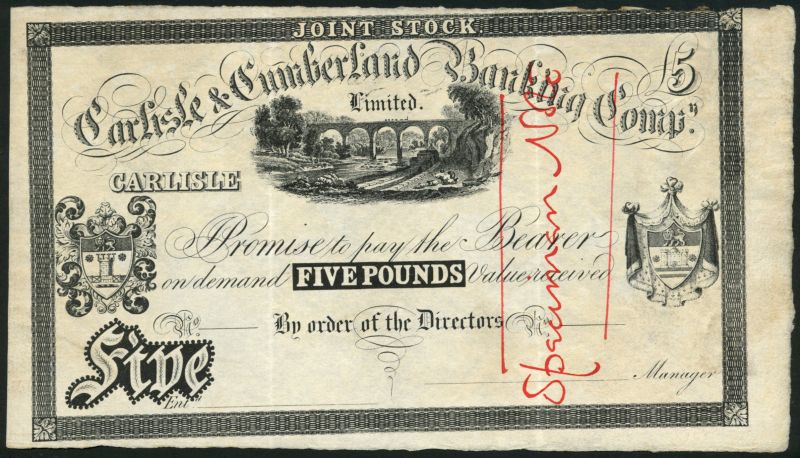 JOINT STOCK
Carlisle & Cumberland Banking Compy.
£5
Limited.
CARLISLE
I Promise to pay the Bearer
on demand FIVE POUNDS Value received
No. By order of the Directors No.
Five
Entd.
Manager
Specimen Note